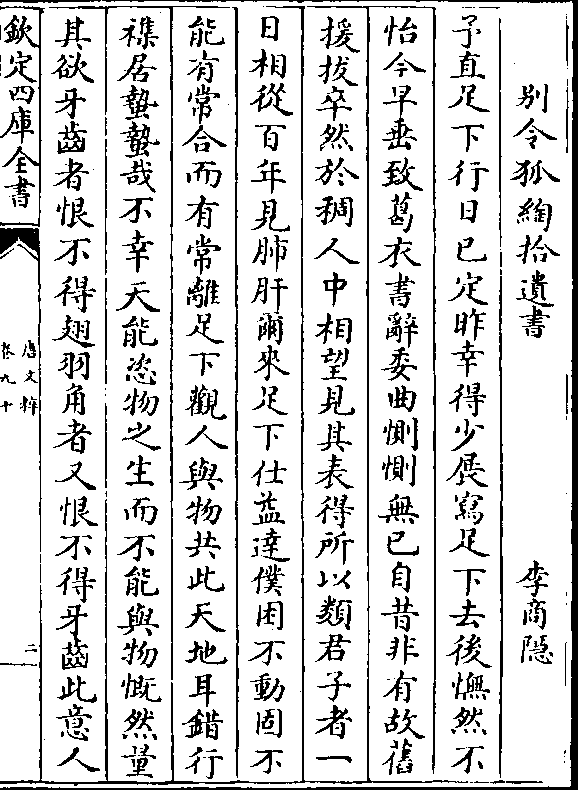 别令狐綯拾遺書　李商隠
子直足下行日已定昨幸得少展寫足下去後憮然不
怡今早垂致葛衣書辭委曲惻惻無已自昔非有故舊
援拔卒然於稠人中相望見其表得所以類君子者一
日相從百年見肺肝爾來足下仕益達僕困不動固不
能有常合而有常離足下觀人與物共此天地耳錯行
襍居蟄蟄哉不幸天能恣物之生而不能與物慨然量
其欲牙齒者恨不得翅羽角者又恨不得牙齒此意人
欽定四庫全書
唐文粹
卷九十
二